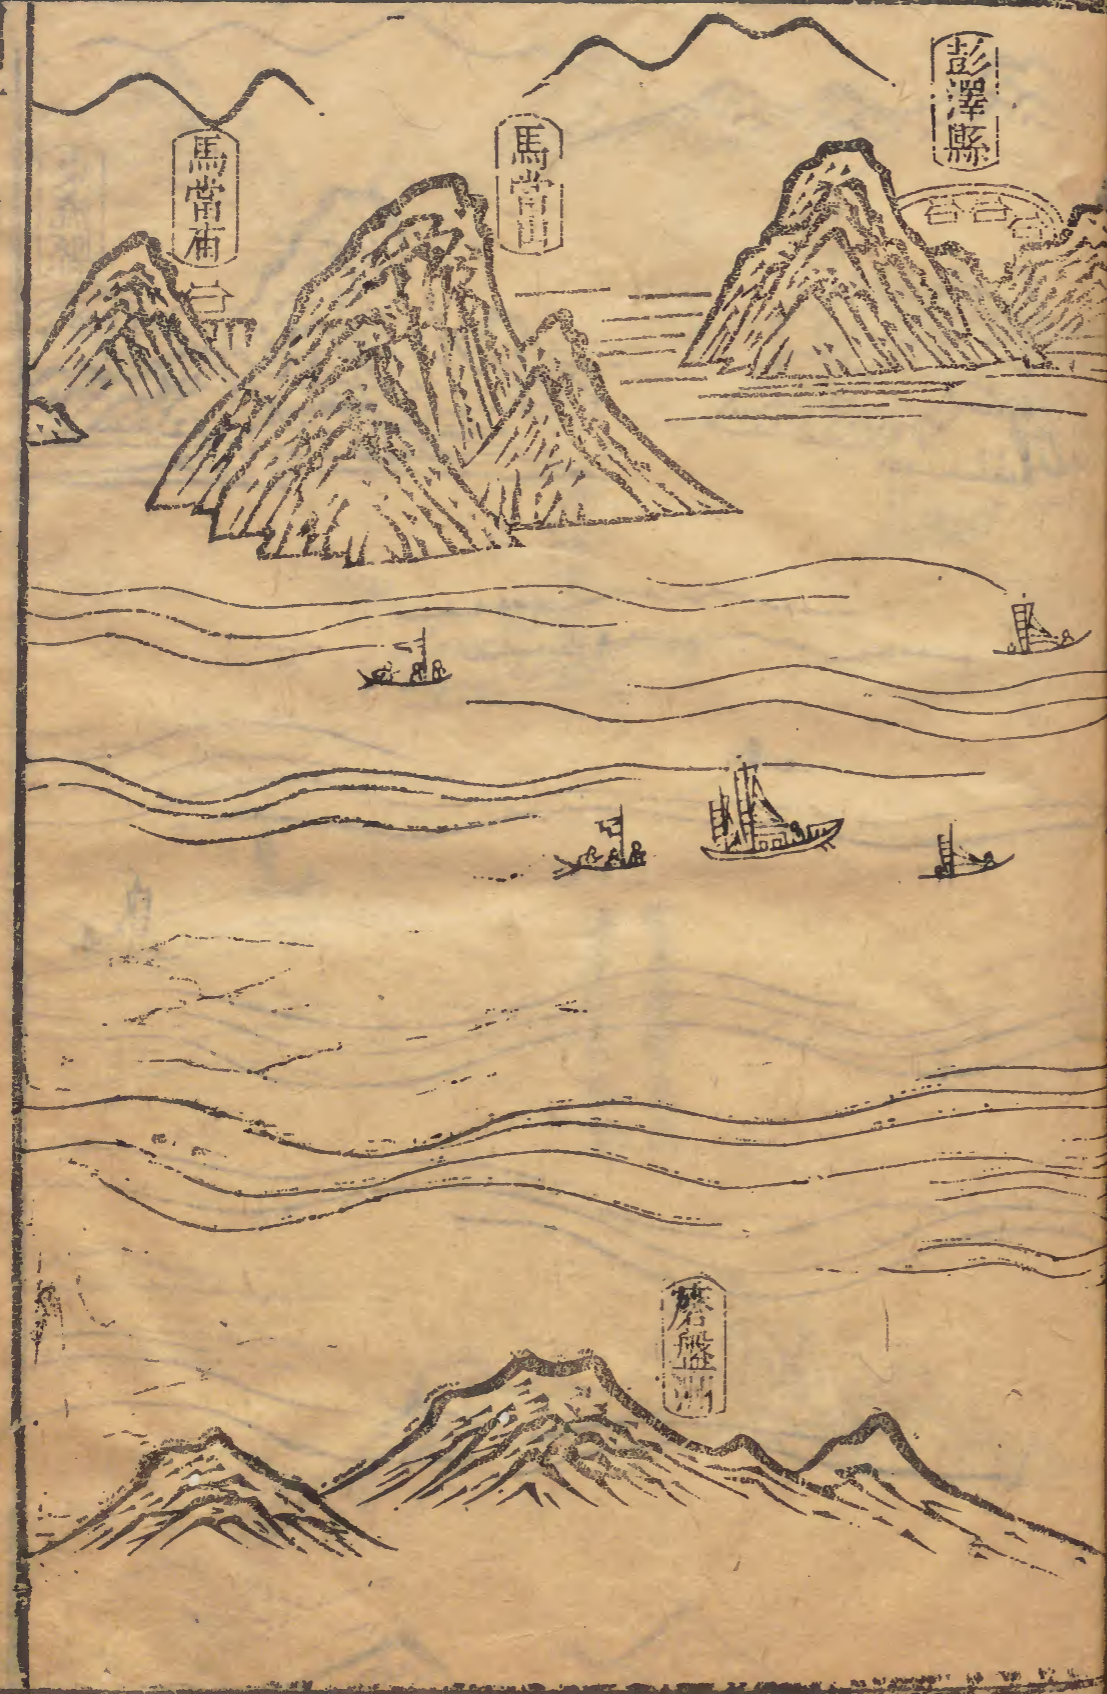 彭澤縣
馬當山
馬當廟
磨盤洲